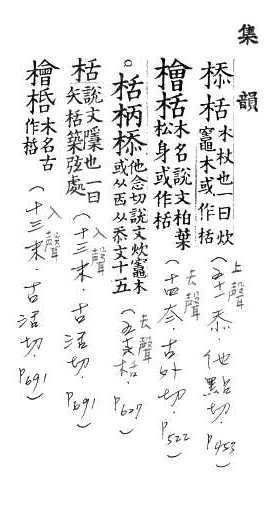 集韻
栝 栝 木杖也一曰炊竈木或作栝
上聲
(五十一忝.他點切.P453)
檜栝 木名說文柏葉松身或作栝
去聲
(十四夳.古外切.P522)
。栝柄栝 他念切說文炊竈木或从丙从忝文十五
去聲
(五㮇栝.P627)
栝 說文隱也一曰矢栝築弦處
入聲
(十三末.古活切.P691)
檜桰 木名古作桰
入聲
(十三末.古活切.P691)